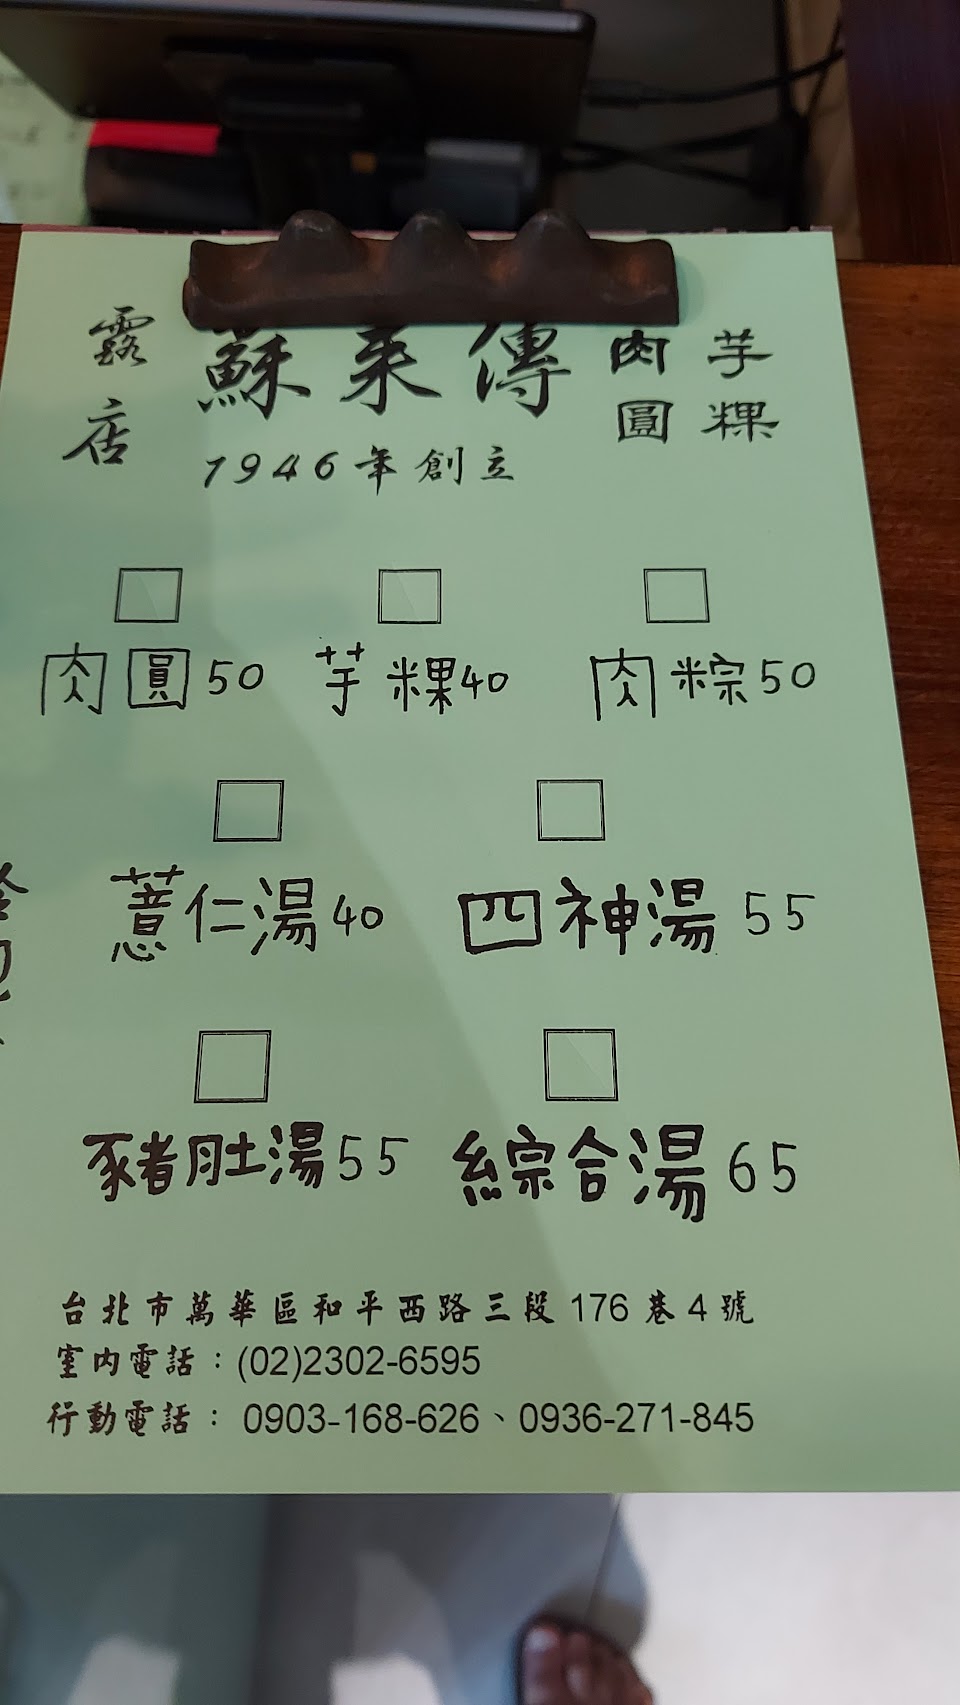 露店 蘇來傳 肉圓 芋粿
1946年創立
肉圓50 芋粿40 肉粽50
薏仁湯40 四神湯 55
豬肚湯55 綜合湯 65
台北市萬華區和平西路三段 176 巷 4 號
室內電話：(02)2302-6595
行動電話： 0903-168-626、0936-271-845